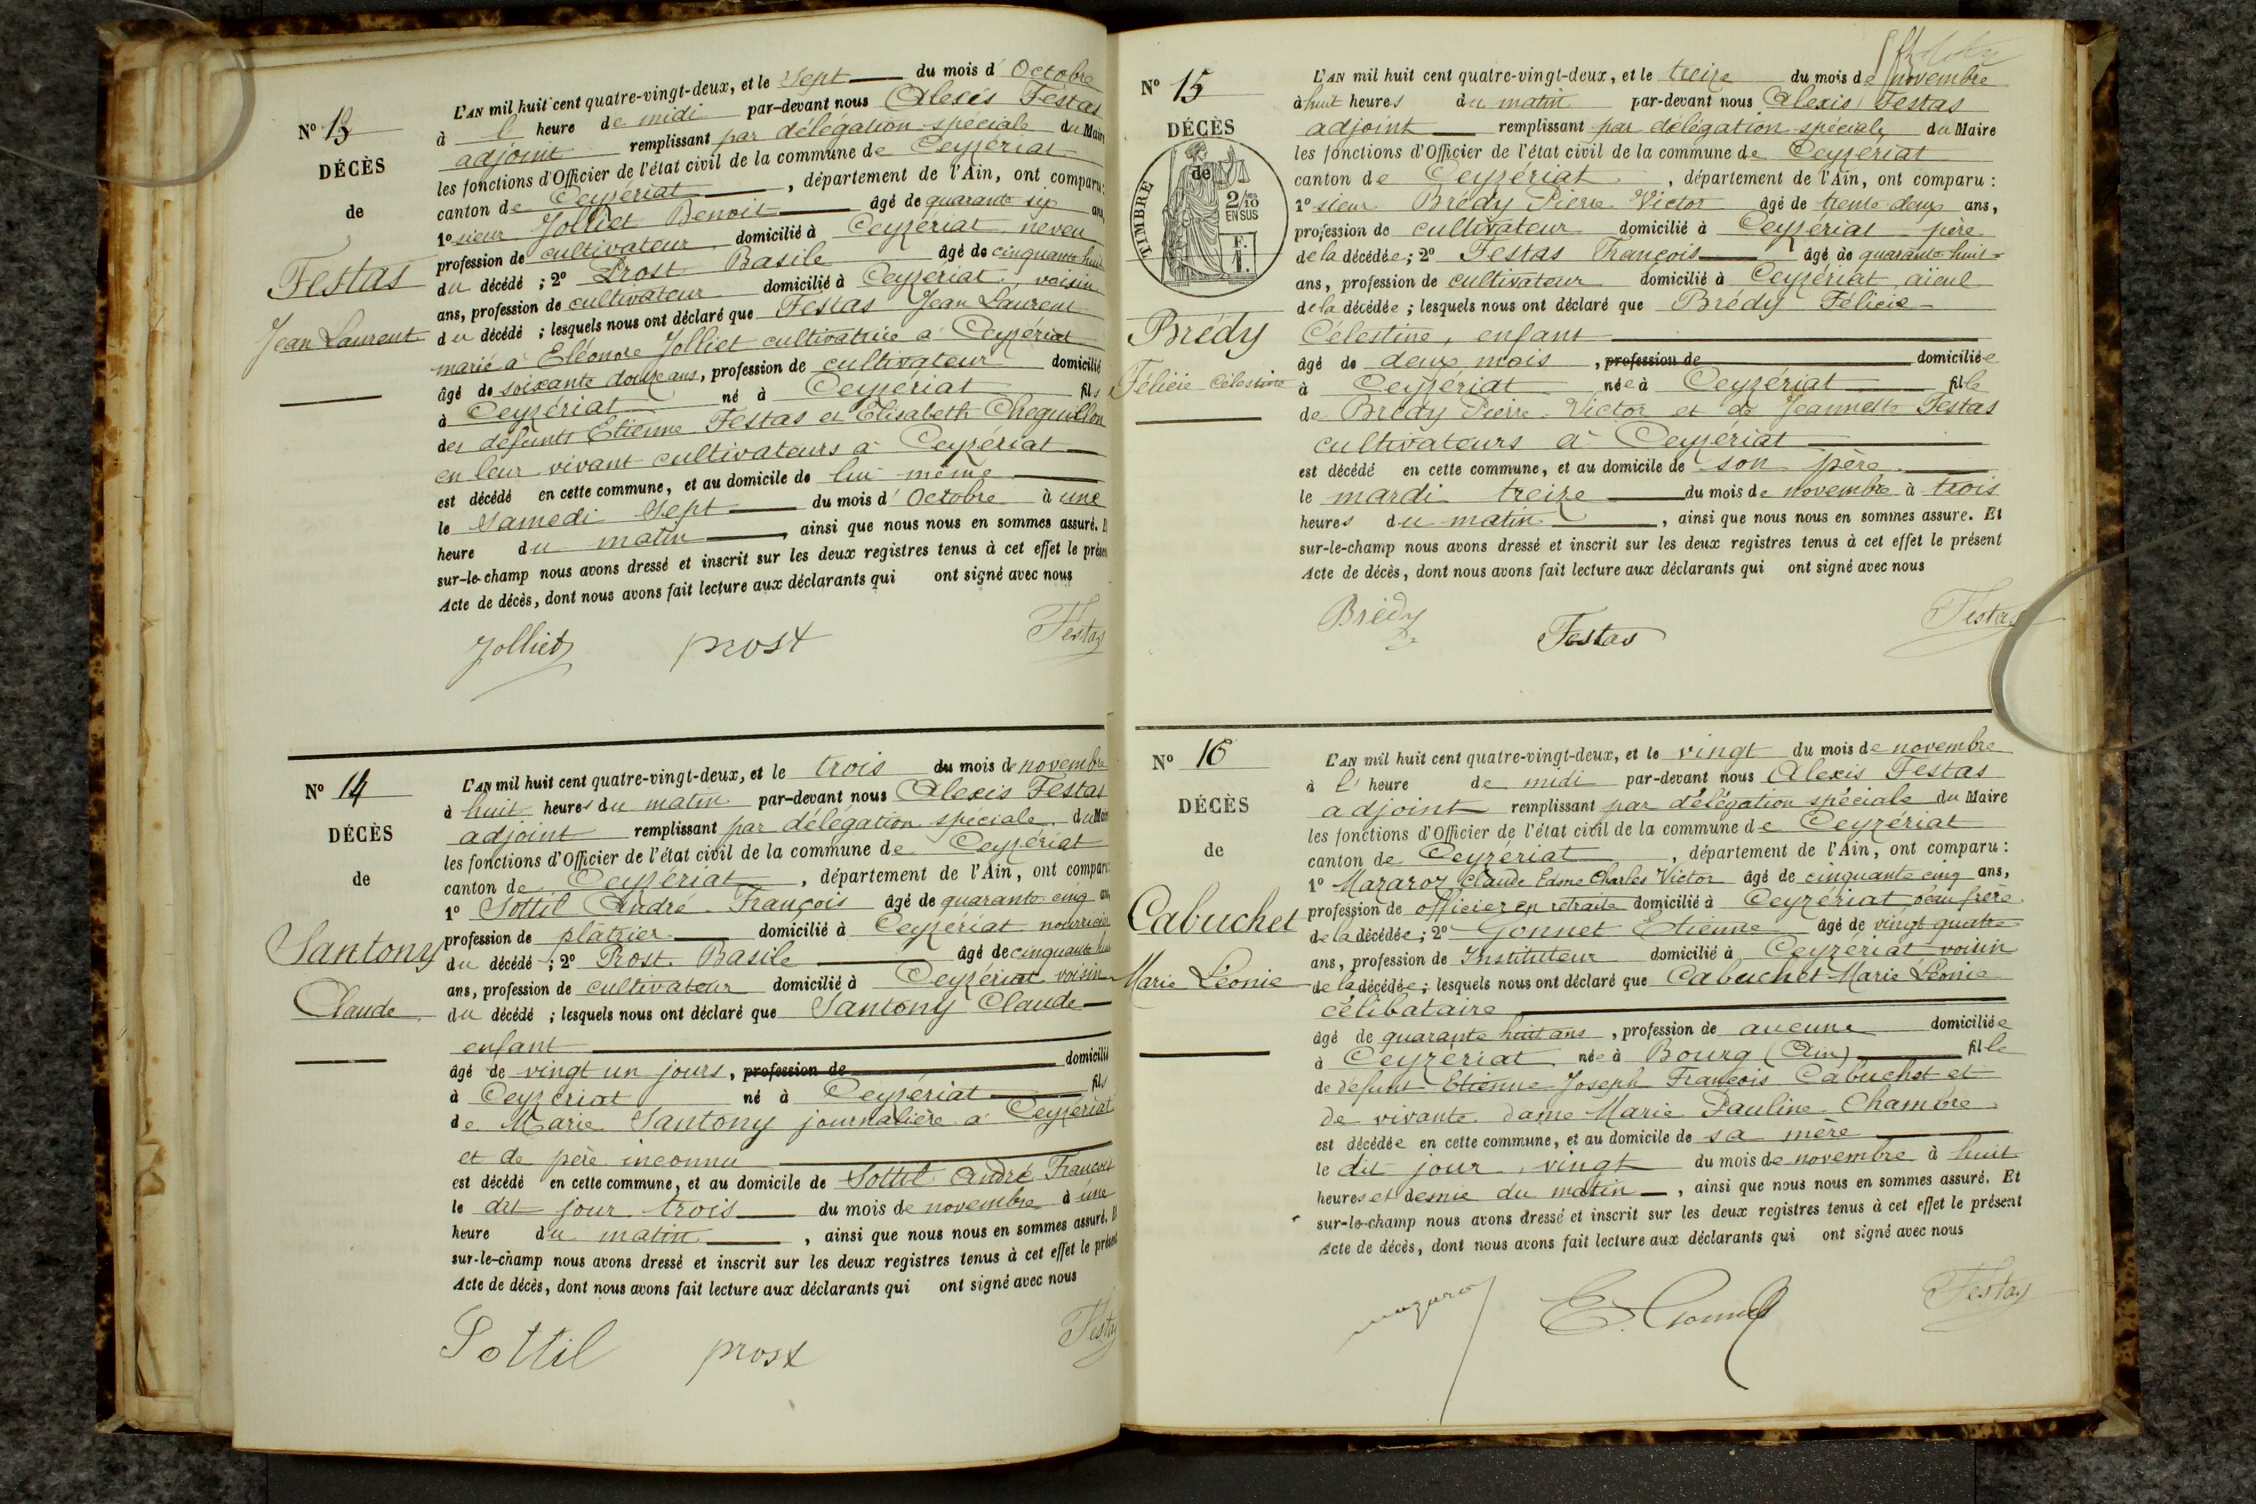 Nº 13
DÉCÈS
de
Festas
Jean Laurent
L'AN mil huit cent quatre-vingt-deux, et le Sept du mois d' Octobre
à l' heure de midi par-devant nous Alexis Festas
adjoint remplissant par délégation spéciale du Maire
les fonctions d'Officier de l'état civil de la commune de Ceyzériat
canton de Ceyzériat , département de l'Ain, ont comparu :
1º sieur Jolliet Benoit âgé de quarante six ans,
profession de cultivateur domicilié à Ceyzériat neveu
du décédé ; 2º Prost Basile âgé de cinquante huit
ans, profession de cultivateur domicilié à Ceyzériat voisin
du décédé ; lesquels nous ont déclaré que Festas Jean Laurent
marié à Eléonore Jolliet cultivatrice à Ceyzériat
âgé de soixante douze ans, profession de cultivateur domicilié
à Ceyzériat né à Ceyzériat fils
des défunts Etienne Festas et Elisabeth Cheguillon
en leur vivant cultivateurs à Ceyzériat
est décédé en cette commune, et au domicile de lui même
le Samedi Sept du mois d' Octobre à une
heure du matin , ainsi que nous nous en sommes assuré. Et
sur-le-champ nous avons dressé et inscrit sur les deux registres tenus à cet effet le présent
Acte de décès, dont nous avons fait lecture aux déclarants qui ont signé avec nous
Jolliet prost Festas
Nº 14
DÉCÈS
de
Santony
Claude
L'AN mil huit cent quatre-vingt-deux, et le trois du mois de novembre
à huit heures du matin par-devant nous Alexis Festas
adjoint remplissant par délégation spéciale du Maire
les fonctions d'Officier de l'état civil de la commune de Ceyzériat
canton de Ceyzériat , département de l'Ain, ont comparu
1º Sottil André François âgé de quarante cinq ans
profession de plâtrier domicilié à Ceyzériat nourricier
du décédé ; 2º Prost Basile âgé de cinquante huit
ans, profession de cultivateur domicilié à Ceyzériat voisin
du décédé ; lesquels nous ont déclaré que Santony Claude
enfant
âgé de vingt un jours, profession de domicilié
à Ceyzériat né à Ceyzériat fils
de Marie Santony journalière à Ceyzériat
et de père inconnu
est décédé en cette commune, et au domicile de Sottil André François
le dit jour trois du mois de novembre à une
heure du matin , ainsi que nous nous en sommes assuré. Et
sur-le-champ nous avons dressé et inscrit sur les deux registres tenus à cet effet le présent
Acte de décès, dont nous avons fait lecture aux déclarants qui ont signé avec nous
Sottil prost Festas
Nº 15
DÉCÈS
de
TIMBRE
2/10
EN SUS
F.
1.
Brédy
Félicie Célestine
L'AN mil huit cent quatre-vingt-deux, et le treize du mois de novembre
à huit heures du matin par-devant nous Alexis Festas
adjoint remplissant par délégation spéciale du Maire
les fonctions d'Officier de l'état civil de la commune de Ceyzériat
canton de Ceyzériat , département de l'Ain, ont comparu :
1º sieur Brédy Pierre Victor âgé de trente deux ans,
profession de cultivateur domicilié à Ceyzériat père
de la décédée ; 2º Festas François âgé de quarante huit
ans, profession de cultivateur domicilié à Ceyzériat aïeul
de la décédée ; lesquels nous ont déclaré que Brédy Félicie
Célestine, enfant
âgé de deux mois , profession de domiciliée
à Ceyzériat née à Ceyzériat fille
de Brédy Pierre Victor et de Jeannette Festas
cultivateurs à Ceyzériat
est décédé en cette commune, et au domicile de son père
le mardi treize du mois de novembre à trois
heures du matin , ainsi que nous nous en sommes assure. Et
sur-le-champ nous avons dressé et inscrit sur les deux registres tenus à cet effet le présent
Acte de décès, dont nous avons fait lecture aux déclarants qui ont signé avec nous
Brédy Festas Festas
Nº 16
DÉCÈS
de
Cabuchet
Marie Léonie
L'AN mil huit cent quatre-vingt-deux, et le vingt du mois de novembre
à l' heure de midi par-devant nous Alexis Festas
adjoint remplissant par délégation spéciale du Maire
les fonctions d'Officier de l'état civil de la commune de Ceyzériat
canton de Ceyzériat , département de l'Ain, ont comparu :
1º Mazaroz Claude Edme Charles Victor âgé de cinquante cinq ans,
profession de officier en retraite domicilié à Ceyzériat beau frère
de la décédée ; 2º Gonnet Etienne âgé de vingt quatre
ans, profession de Instituteur domicilié à Ceyzériat voisin
de la décédée ; lesquels nous ont déclaré que Cabuchet Marie Léonie
célibataire
âgé de quarante huit ans , profession de aucune domiciliée
à Ceyzériat née à Bourg (Ain) fille
de défunt Etienne Joseph François Cabuchet et
de vivante dame Marie Pauline Chambre
est décédée en cette commune, et au domicile de sa mère
le dit jour vingt du mois de novembre à huit
heures et demie du matin , ainsi que nous nous en sommes assuré. Et
sur-le-champ nous avons dressé et inscrit sur les deux registres tenus à cet effet le présent
Acte de décès, dont nous avons fait lecture aux déclarants qui ont signé avec nous
mazaroz E. Gonnet Festas